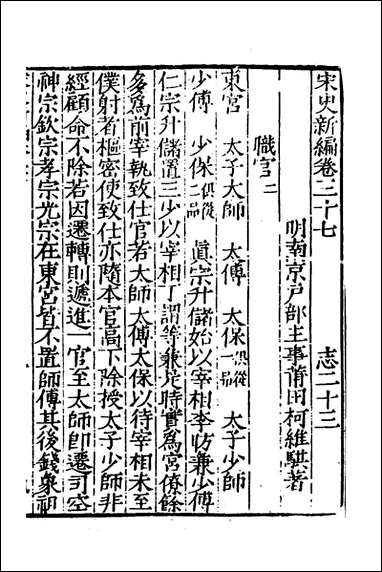 宋史新編卷三十七 志二十三
明南京戶部主事莆田柯維騏著
職官二
東宮 太子太師 太傅 太保俱從一品 太子少師
少傅 少保俱從 眞宗升儲始以宰相李昉兼少傅
仁宗升儲置三少以宰相丁謂等兼是時實爲宮僚餘
多爲前宰執致仕官若太師太傅太保以待宰相未至
僕射者樞密使致仕亦隨本官高下除授太子少師非
經顧命不除若因遷轉則遞進一官至太師卽遷司空
神宗欽宗孝宗光宗在東宮皆不置師傅其後錢象祖